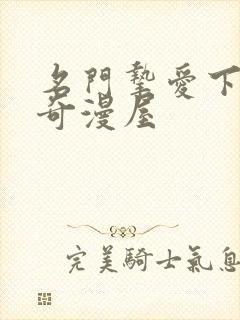 名門摯愛下
奇漫屋
完美騎士氣息